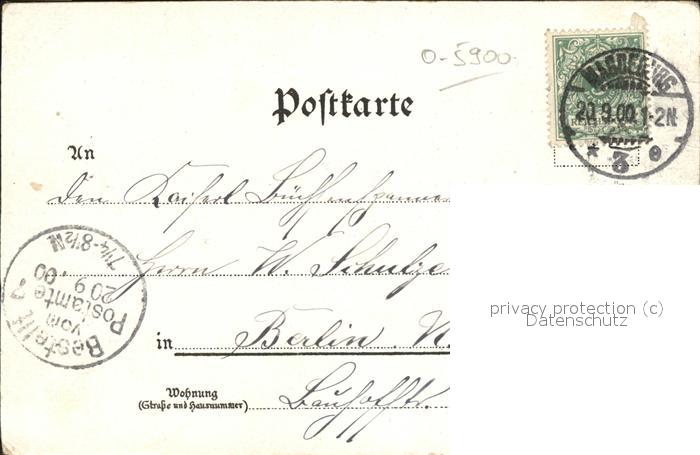 0-5900.
Postkarte
MAGDEBURG
20.9.00. 1-2N
* 3 e
An
Den Kaiserl
Herrn W. Schulze
Bestellt
vom
Postamte 7
20 9 00
7¼-8½N
in Berlin N.
Wohnung
(Straße und Hausnummer)
privacy protection (c)
Datenschutz